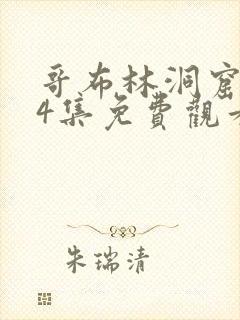 哥布林洞窟
4集免費觀看
朱瑞清